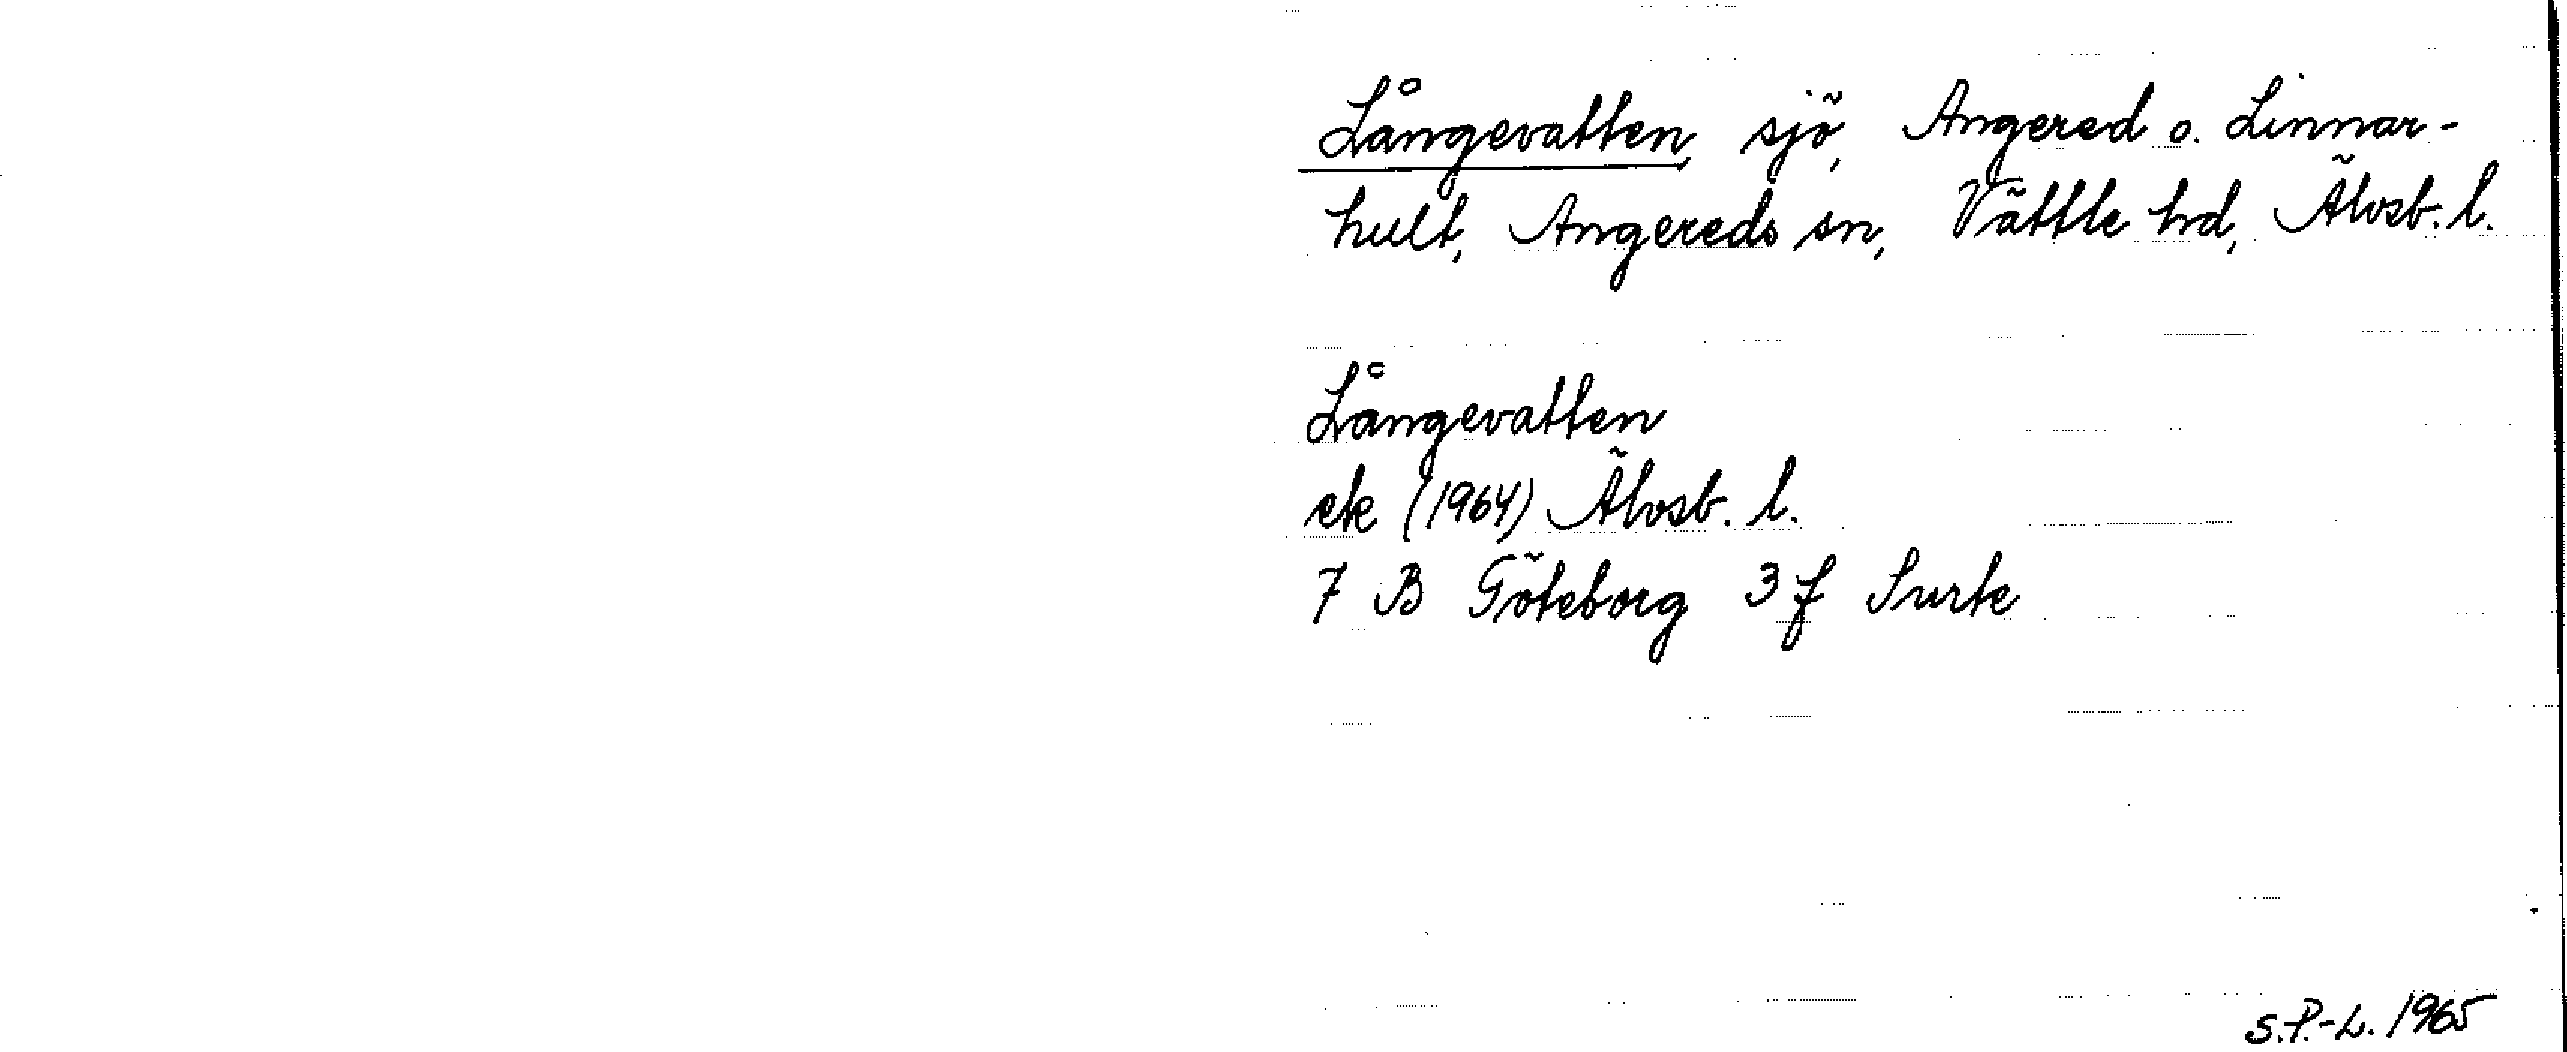 Långevatten, sjö, Angered o. Linnar-
hult, Angereds sn, Vättle hd, Älvsb. l.
Långevatten
ek (1964) Älvsb. l.
7 B Göteborg 3 f Surte
S.P.-L. 1965